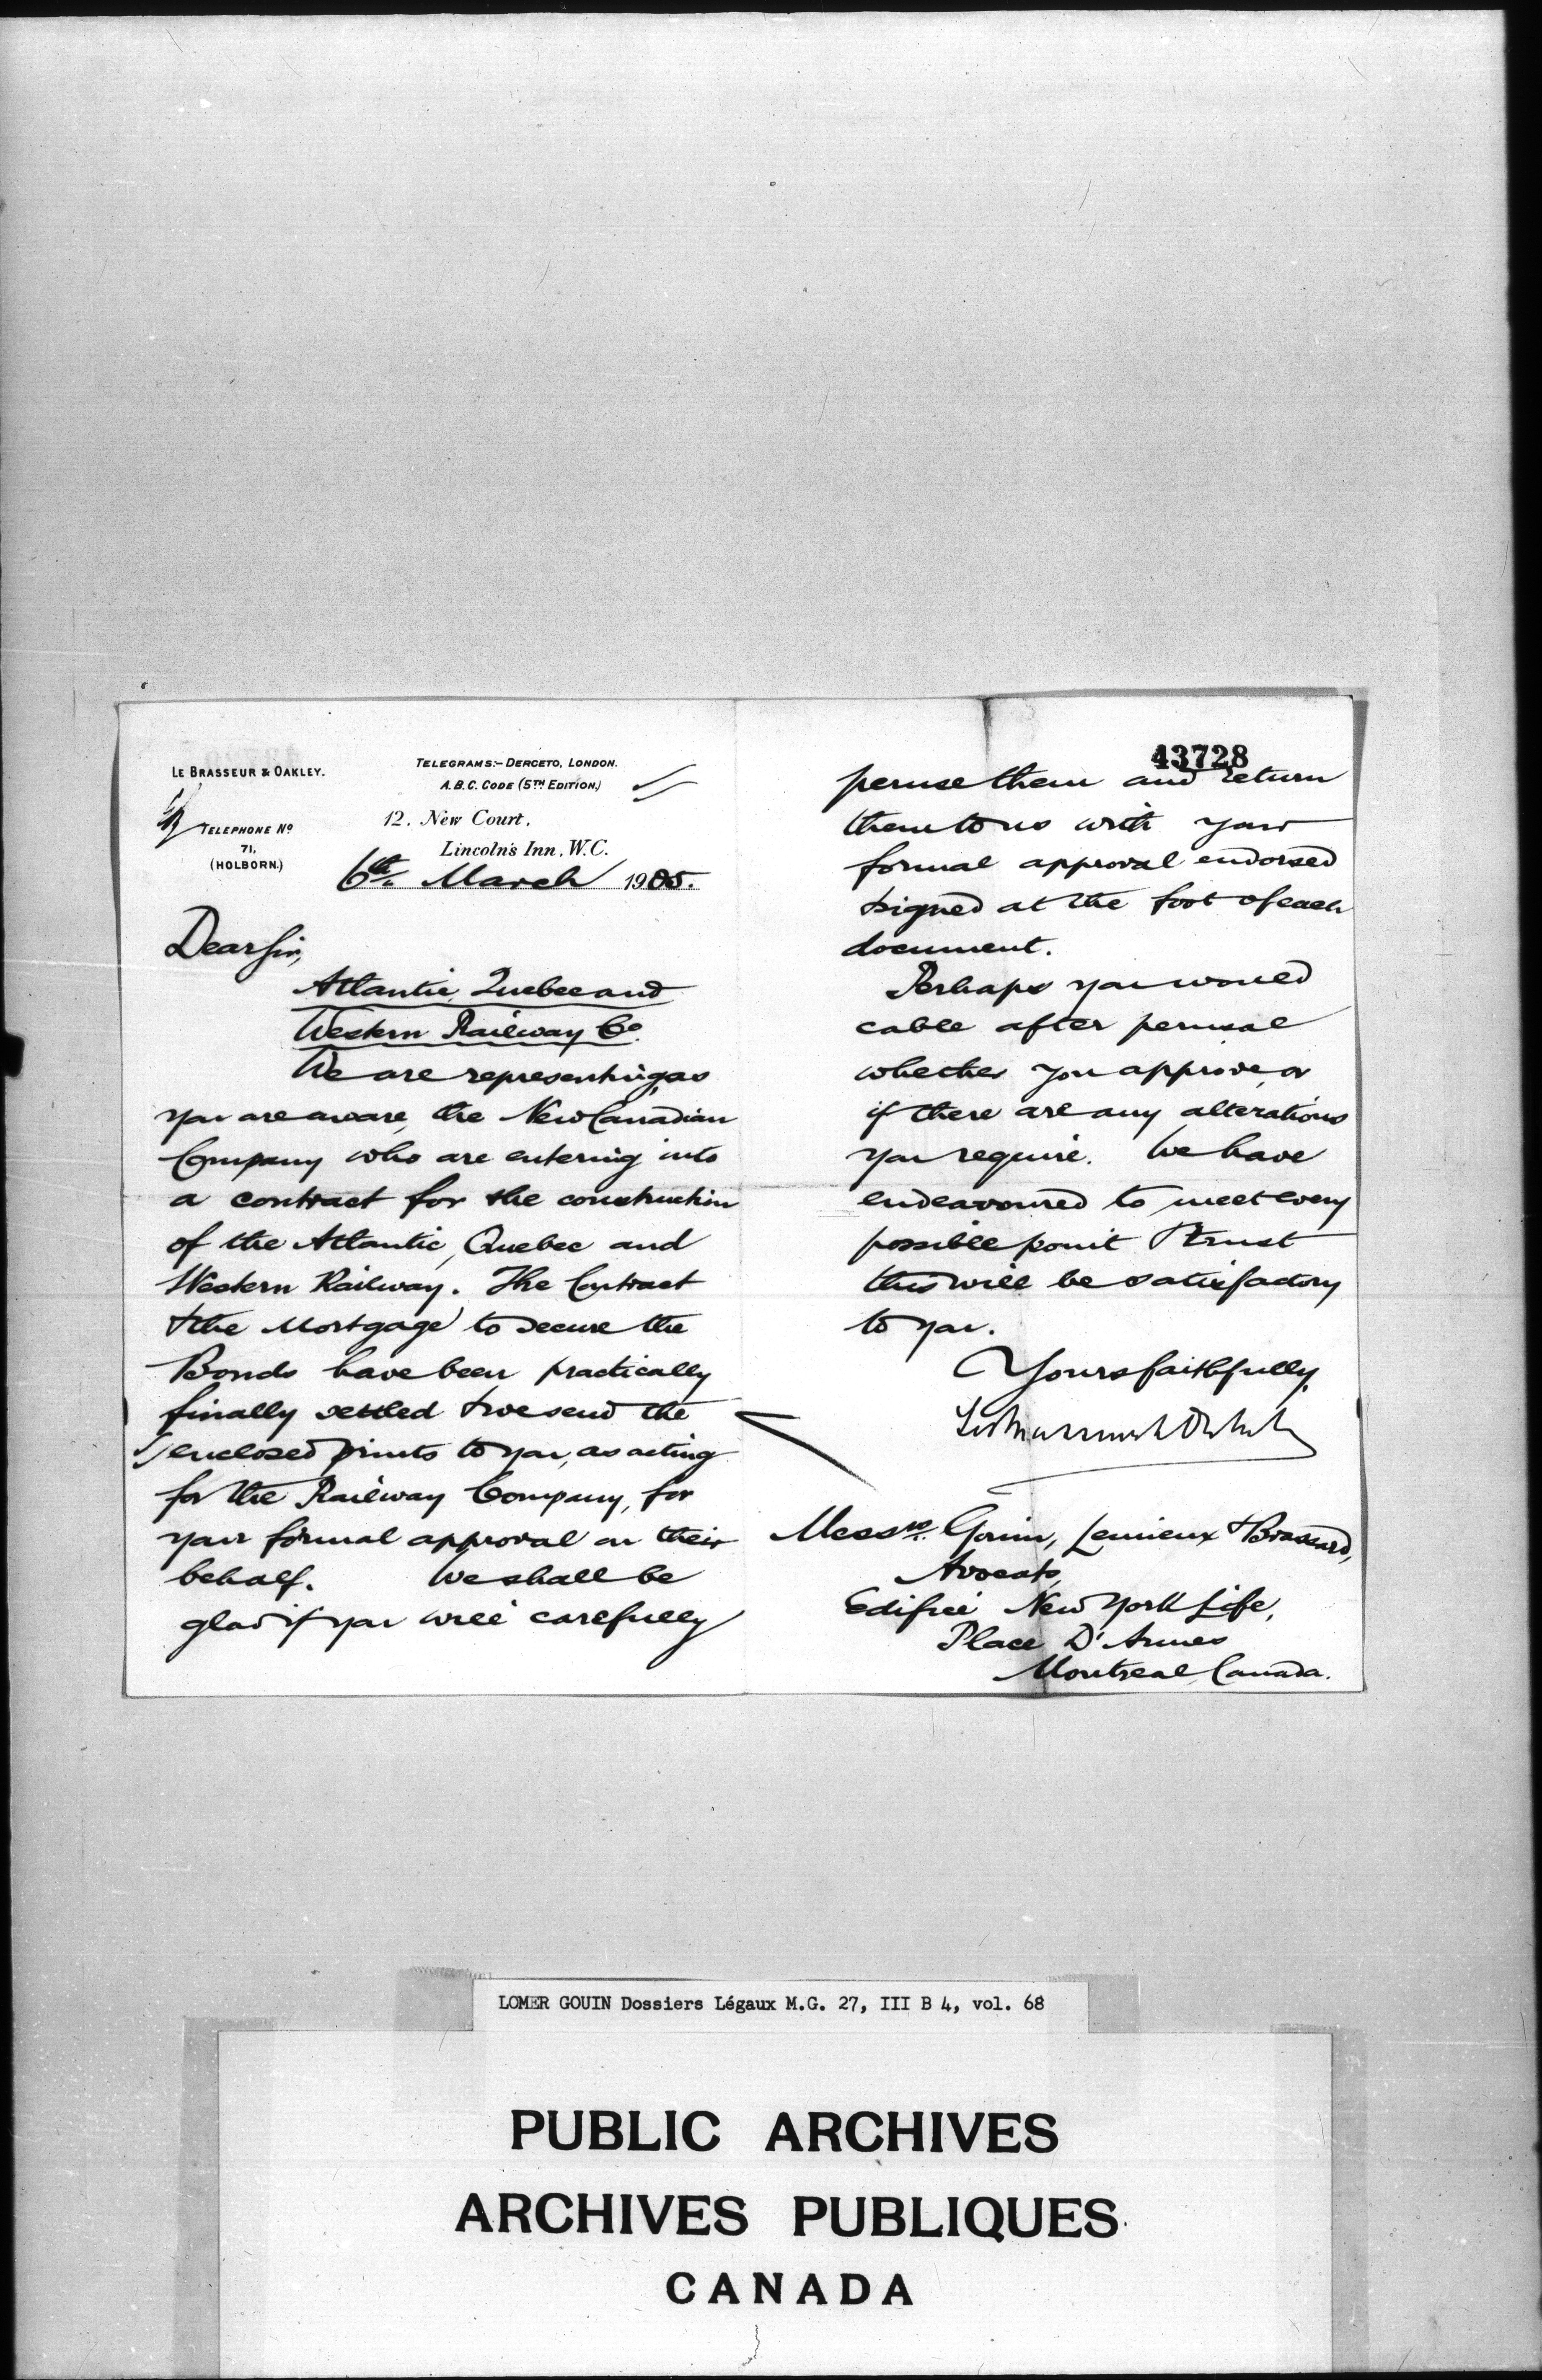 LE BRASSEUR & OAKLEY.
TELEPHONE Nº
71,
(HOLBORN.)
TELEGRAMS:- DERCETO, LONDON.
A.B.C. CODE (5TH EDITION.)
12. New Court,
Lincoln's Inn, W.C.
6th. March 1905.
Dear Sir,
Atlantic, Quebec and
Western Railway Co.
We are representing, as
you are aware, the New Canadian
Company who are entering into
a contract for the construction
of the Atlantic, Quebec and
Western Railway. The Contract
& the Mortgage to secure the
Bonds have been practically
finally settled & we send the
enclosed prints to you, as acting
for the Railway Company, for
your formal approval on their
behalf. We shall be
glad if you will carefully
43728
peruse them and return
them to us with your
formal approval endorsed
& signed at the foot of each
document.
Perhaps you would
cable after perusal
whether you approve, or
if there are any alterations
you require. We have
endeavoured to meet every
possible point & trust
this will be satisfactory
to you.
Yours faithfully,
Messrs. Gouin, Lemieux & Brassard,
Avocats,
Edifice New York Life,
Place D'Armes
Montreal, Canada.
LOMER GOUIN Dossiers Légaux M.G. 27, III B 4, vol. 68
PUBLIC ARCHIVES
ARCHIVES PUBLIQUES
CANADA